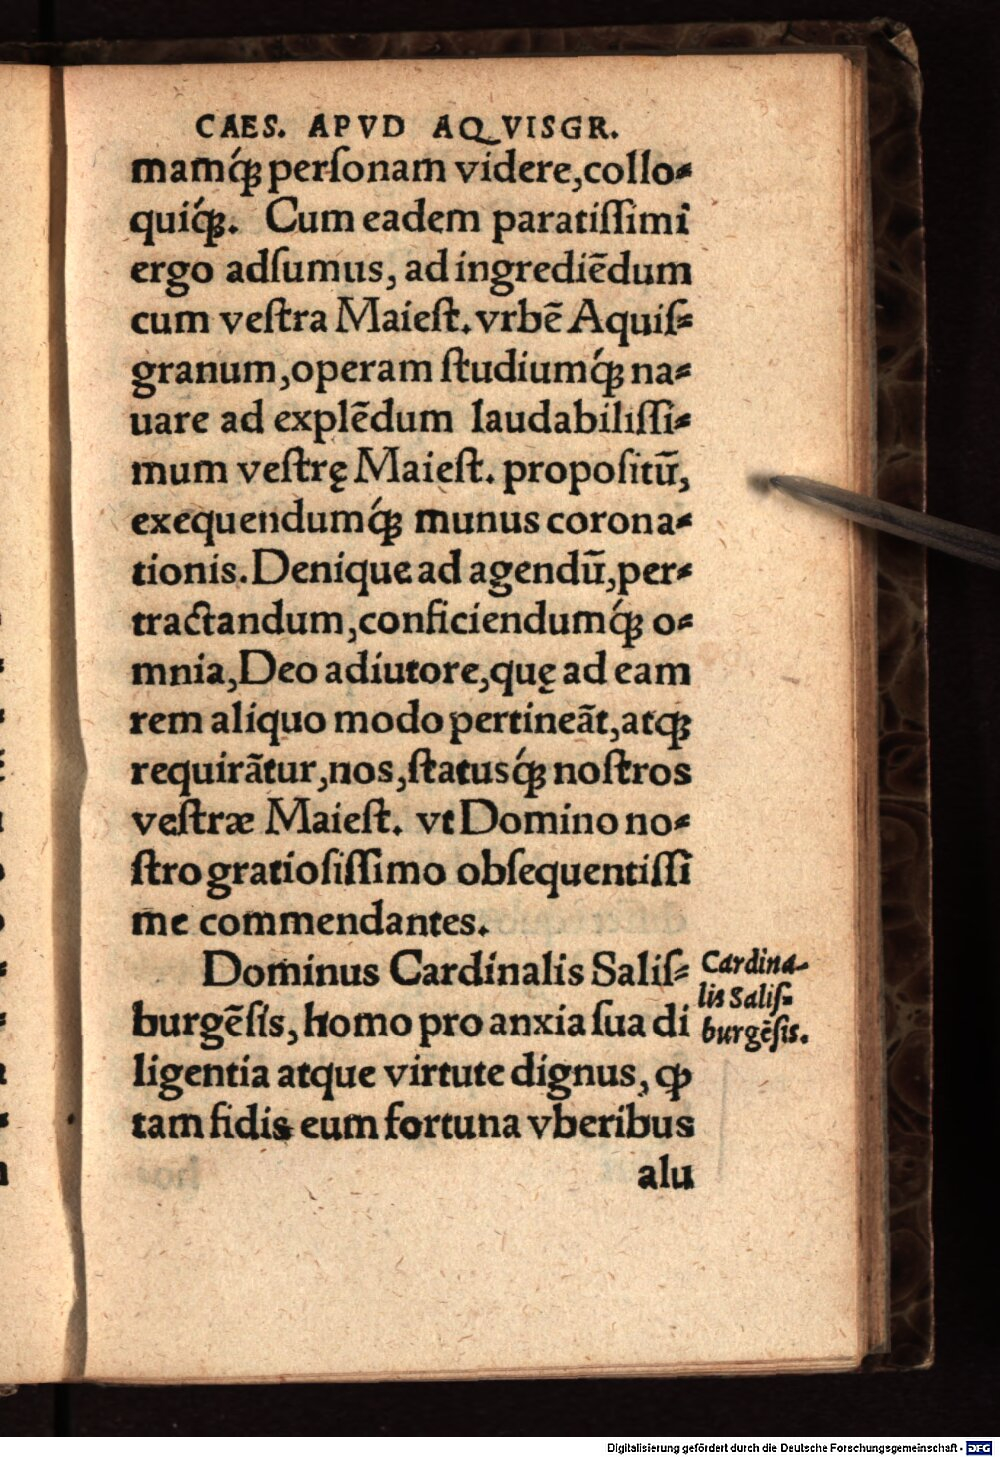 CAES. APVD AQVISGR.
mamq́ꝫ perſonam videre,collo⸗
quiq́ꝫ. Cum eadem paratiſſimi
ergo adſumus, ad ingrediēdum
cum veſtra Maieſt. vrbē Aquiſ⸗
granum,operam ſtudiumq́ꝫ na⸗
uare ad explēdum laudabiliſſi⸗
mum veſtrę Maieſt. propoſitū,
exequendumq́ꝫ munus corona⸗
tionis. Denique ad agendū,per⸗
tractandum,conficiendumq́ꝫ o⸗
mnia,Deo adiutore,quę ad eam
rem aliquo modo pertineāt,atqꝫ
requirātur,nos,ſtatusq́ꝫ noſtros
veſtræ Maieſt. vt Domino no⸗
ſtro gratioſiſſimo obſequentiſſi
me commendantes.
Dominus Cardinalis Saliſ⸗
burgēſis, homo pro anxia ſua di
ligentia atque virtute dignus, ꝙ
tam fidis eum fortuna vberibus
alu
Cardina-
lis Saliſ⸗
burgēſis.
Digitalisierung gefördert durch die Deutsche Forschungsgemeinschaft - DFG